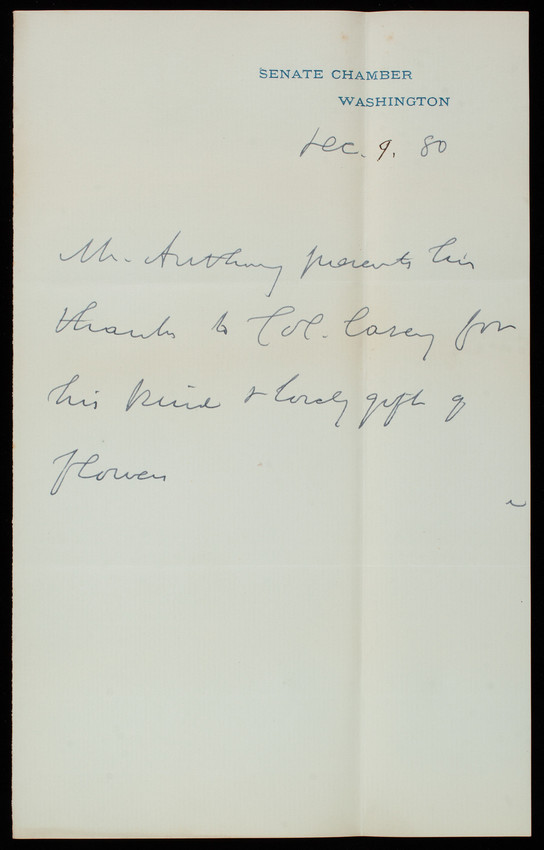 SENATE CHAMBER
WASHINGTON
Dec. 9. 80
Mr. Anthony presents his
thanks to Col. Casey for
his kind & lovely gift of
flowers